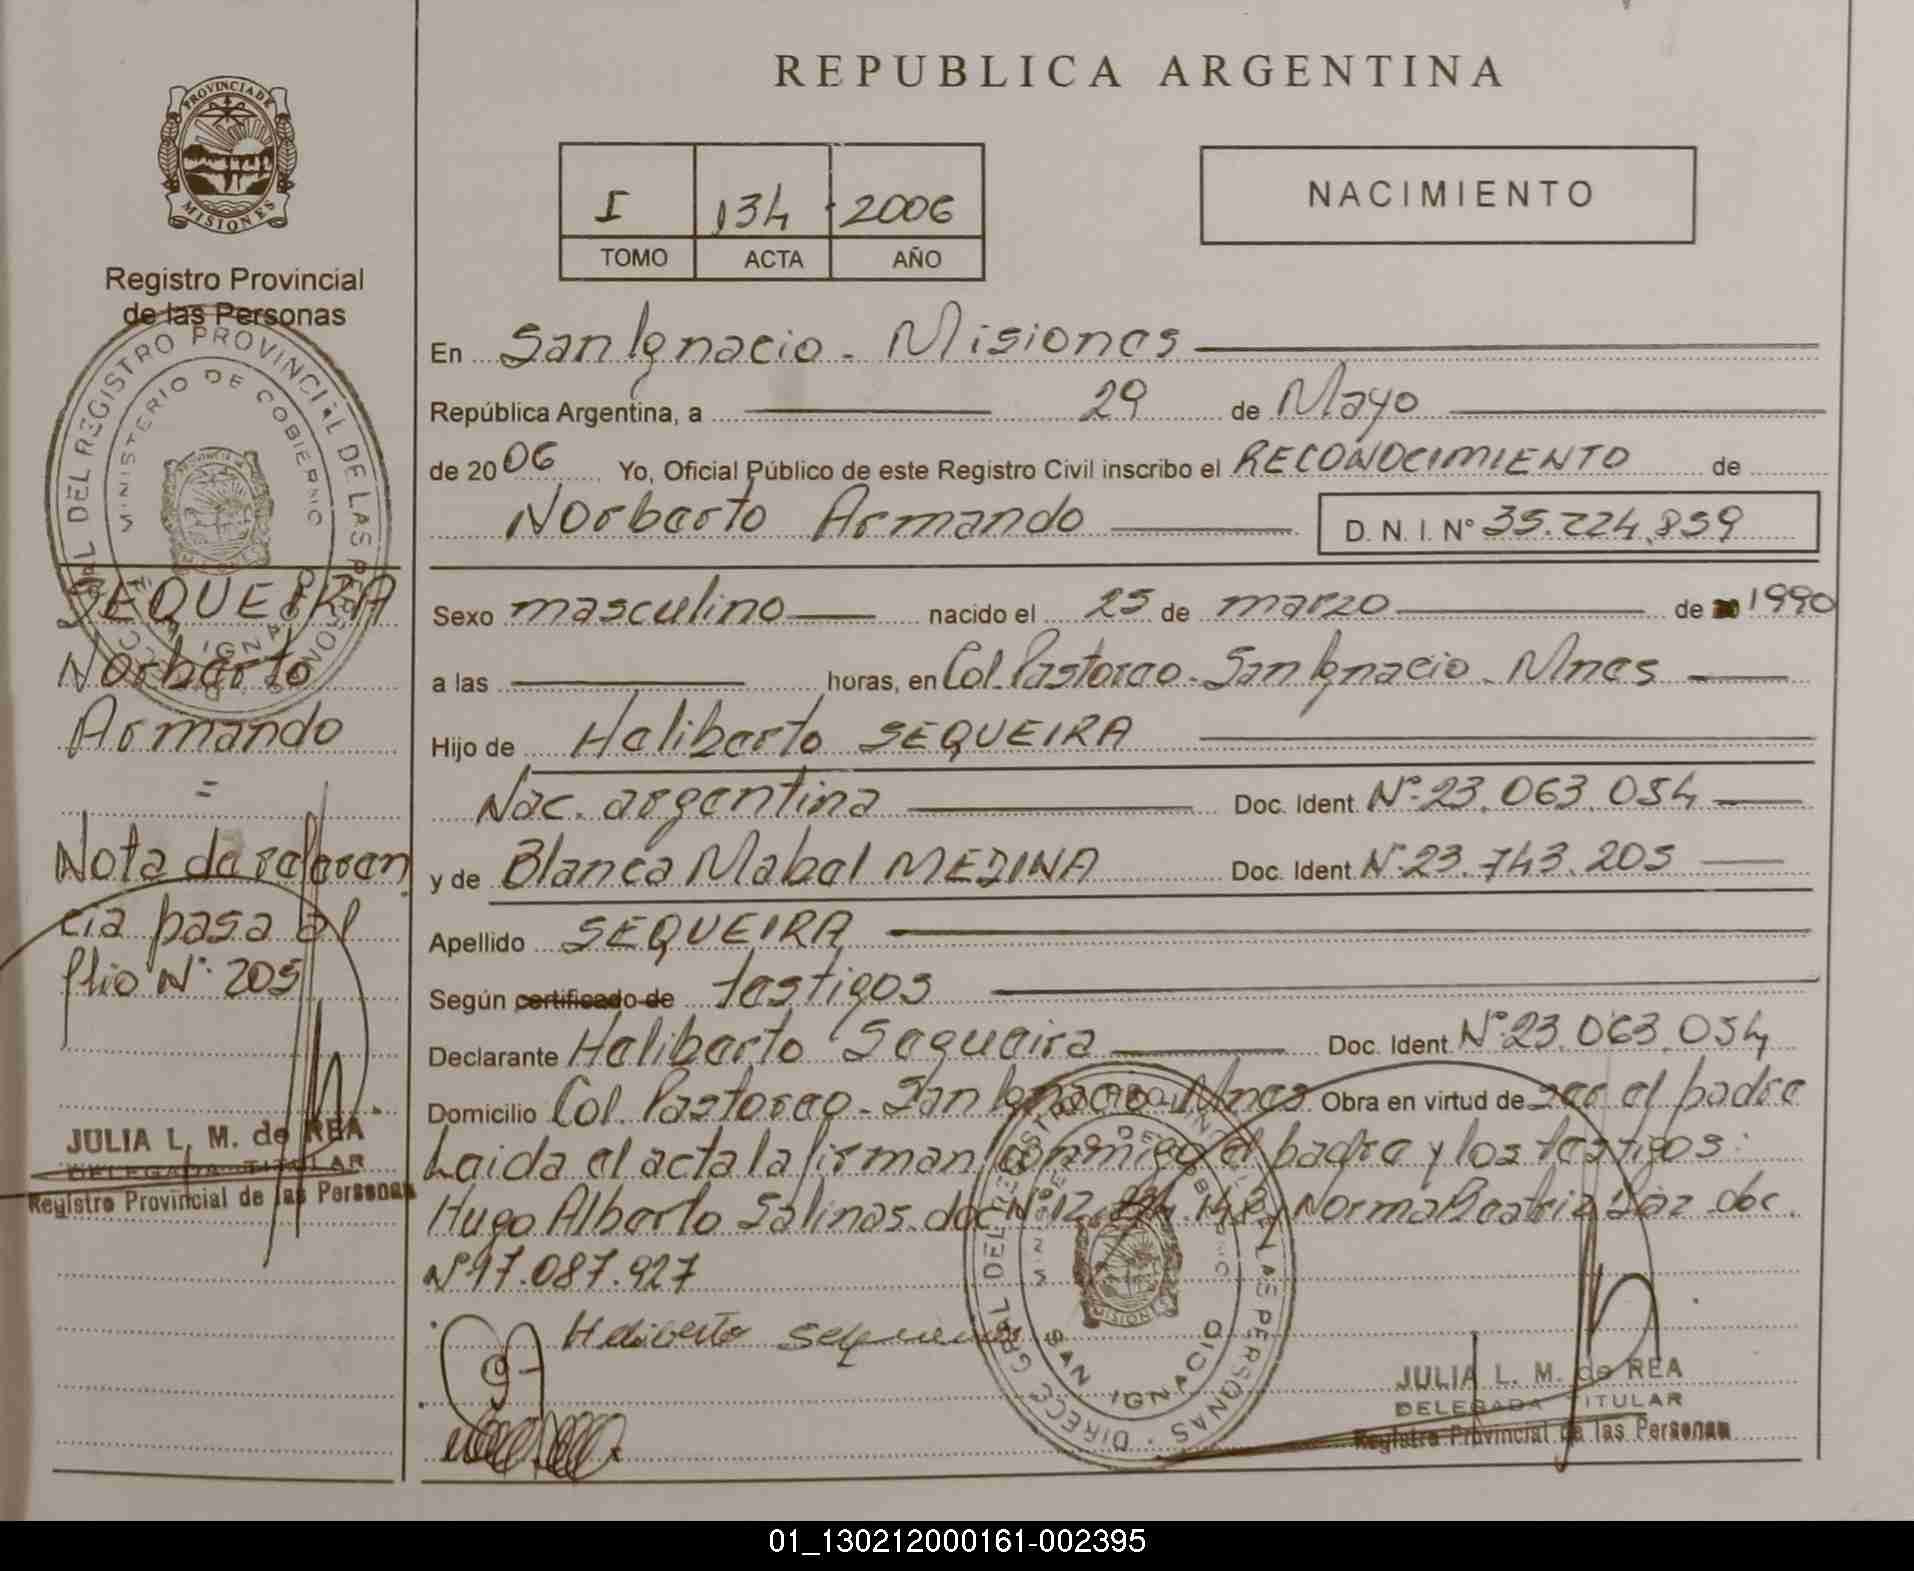 PROVINCIA DE
MISIONES
Registro Provincial
de las Personas
SEQUEIRA
Norberto
Armando
=
Nota de referen
cia pasa al
flio Nº 205
JULIA L. M. de REA
DELEGADA TITULAR
Registro Provincial de las Personas
REPUBLICA ARGENTINA
I 134 2006
TOMO ACTA AÑO
NACIMIENTO
En San Ignacio - Misiones
República Argentina, a 29 de Mayo
de 2006 Yo, Oficial Público de este Registro Civil inscribo el RECONOCIMIENTO de
Norberto Armando D. N. I. Nº 35.224.859
Sexo masculino nacido el 25 de marzo de 1990
a las horas, en Col. Pastoreo - San Ignacio - Mnes
Hijo de Heliberto SEQUEIRA
Nac. argentina Doc. Ident. Nº 23.063.054
y de Blanca Mabel MEDINA Doc. Ident. Nº 23.743.205
Apellido SEQUEIRA
Según certificado de testigos
Declarante Heliberto Sequeira Doc. Ident. Nº 23.063.054
Domicilio Col. Pastoreo - San Ignacio - Mnes Obra en virtud de ser el padre
Leida el acta la firman conmigo el padre y los testigos:
Hugo Alberto Salinas. doc Nº 12. .148 y Norma Beatriz Diaz doc.
Nº 17.087.927
Heliberto sequeira
MINISTERIO DE GOBIERNO
DIRECC GRAL DEL REGISTRO PROVINCIAL DE LAS PERSONAS
SAN IGNACIO
JULIA L. M. de REA
DELEGADA TITULAR
Registro Provincial de las Personas
01_130212000161-002395